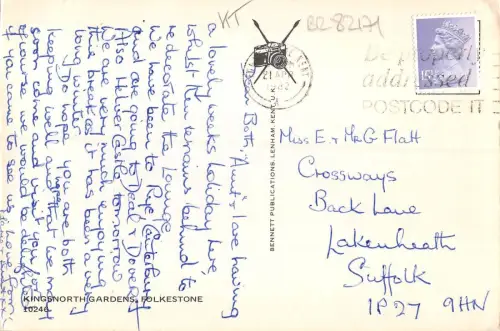 KT
BR-82171
Dear Both, Aunt & I are having
a lovely weeks holiday here,
whilst Ken remains behind to
re decorate the Lounge.
We have been to Rye, Canterbury
and are going to Deal & Dover
(Also Hever Castle) tomorrow.
We are very much enjoying
this break as it has been a very
long winter.
Do hope you are both
keeping well and that we may
soon come and visit you, or
of course we would be delighted
if you came to see us. Love from
BENNETT PUBLICATIONS, LENHAM, KENT, U.K.
KINGSNORTH GARDENS, FOLKESTONE
10246
21 APR
Be properly
addressed
POSTCODE IT
Miss E. & Mr G Flatt
Crossways
Back Lane
Lakenheath
Suffolk
IP27 9HN